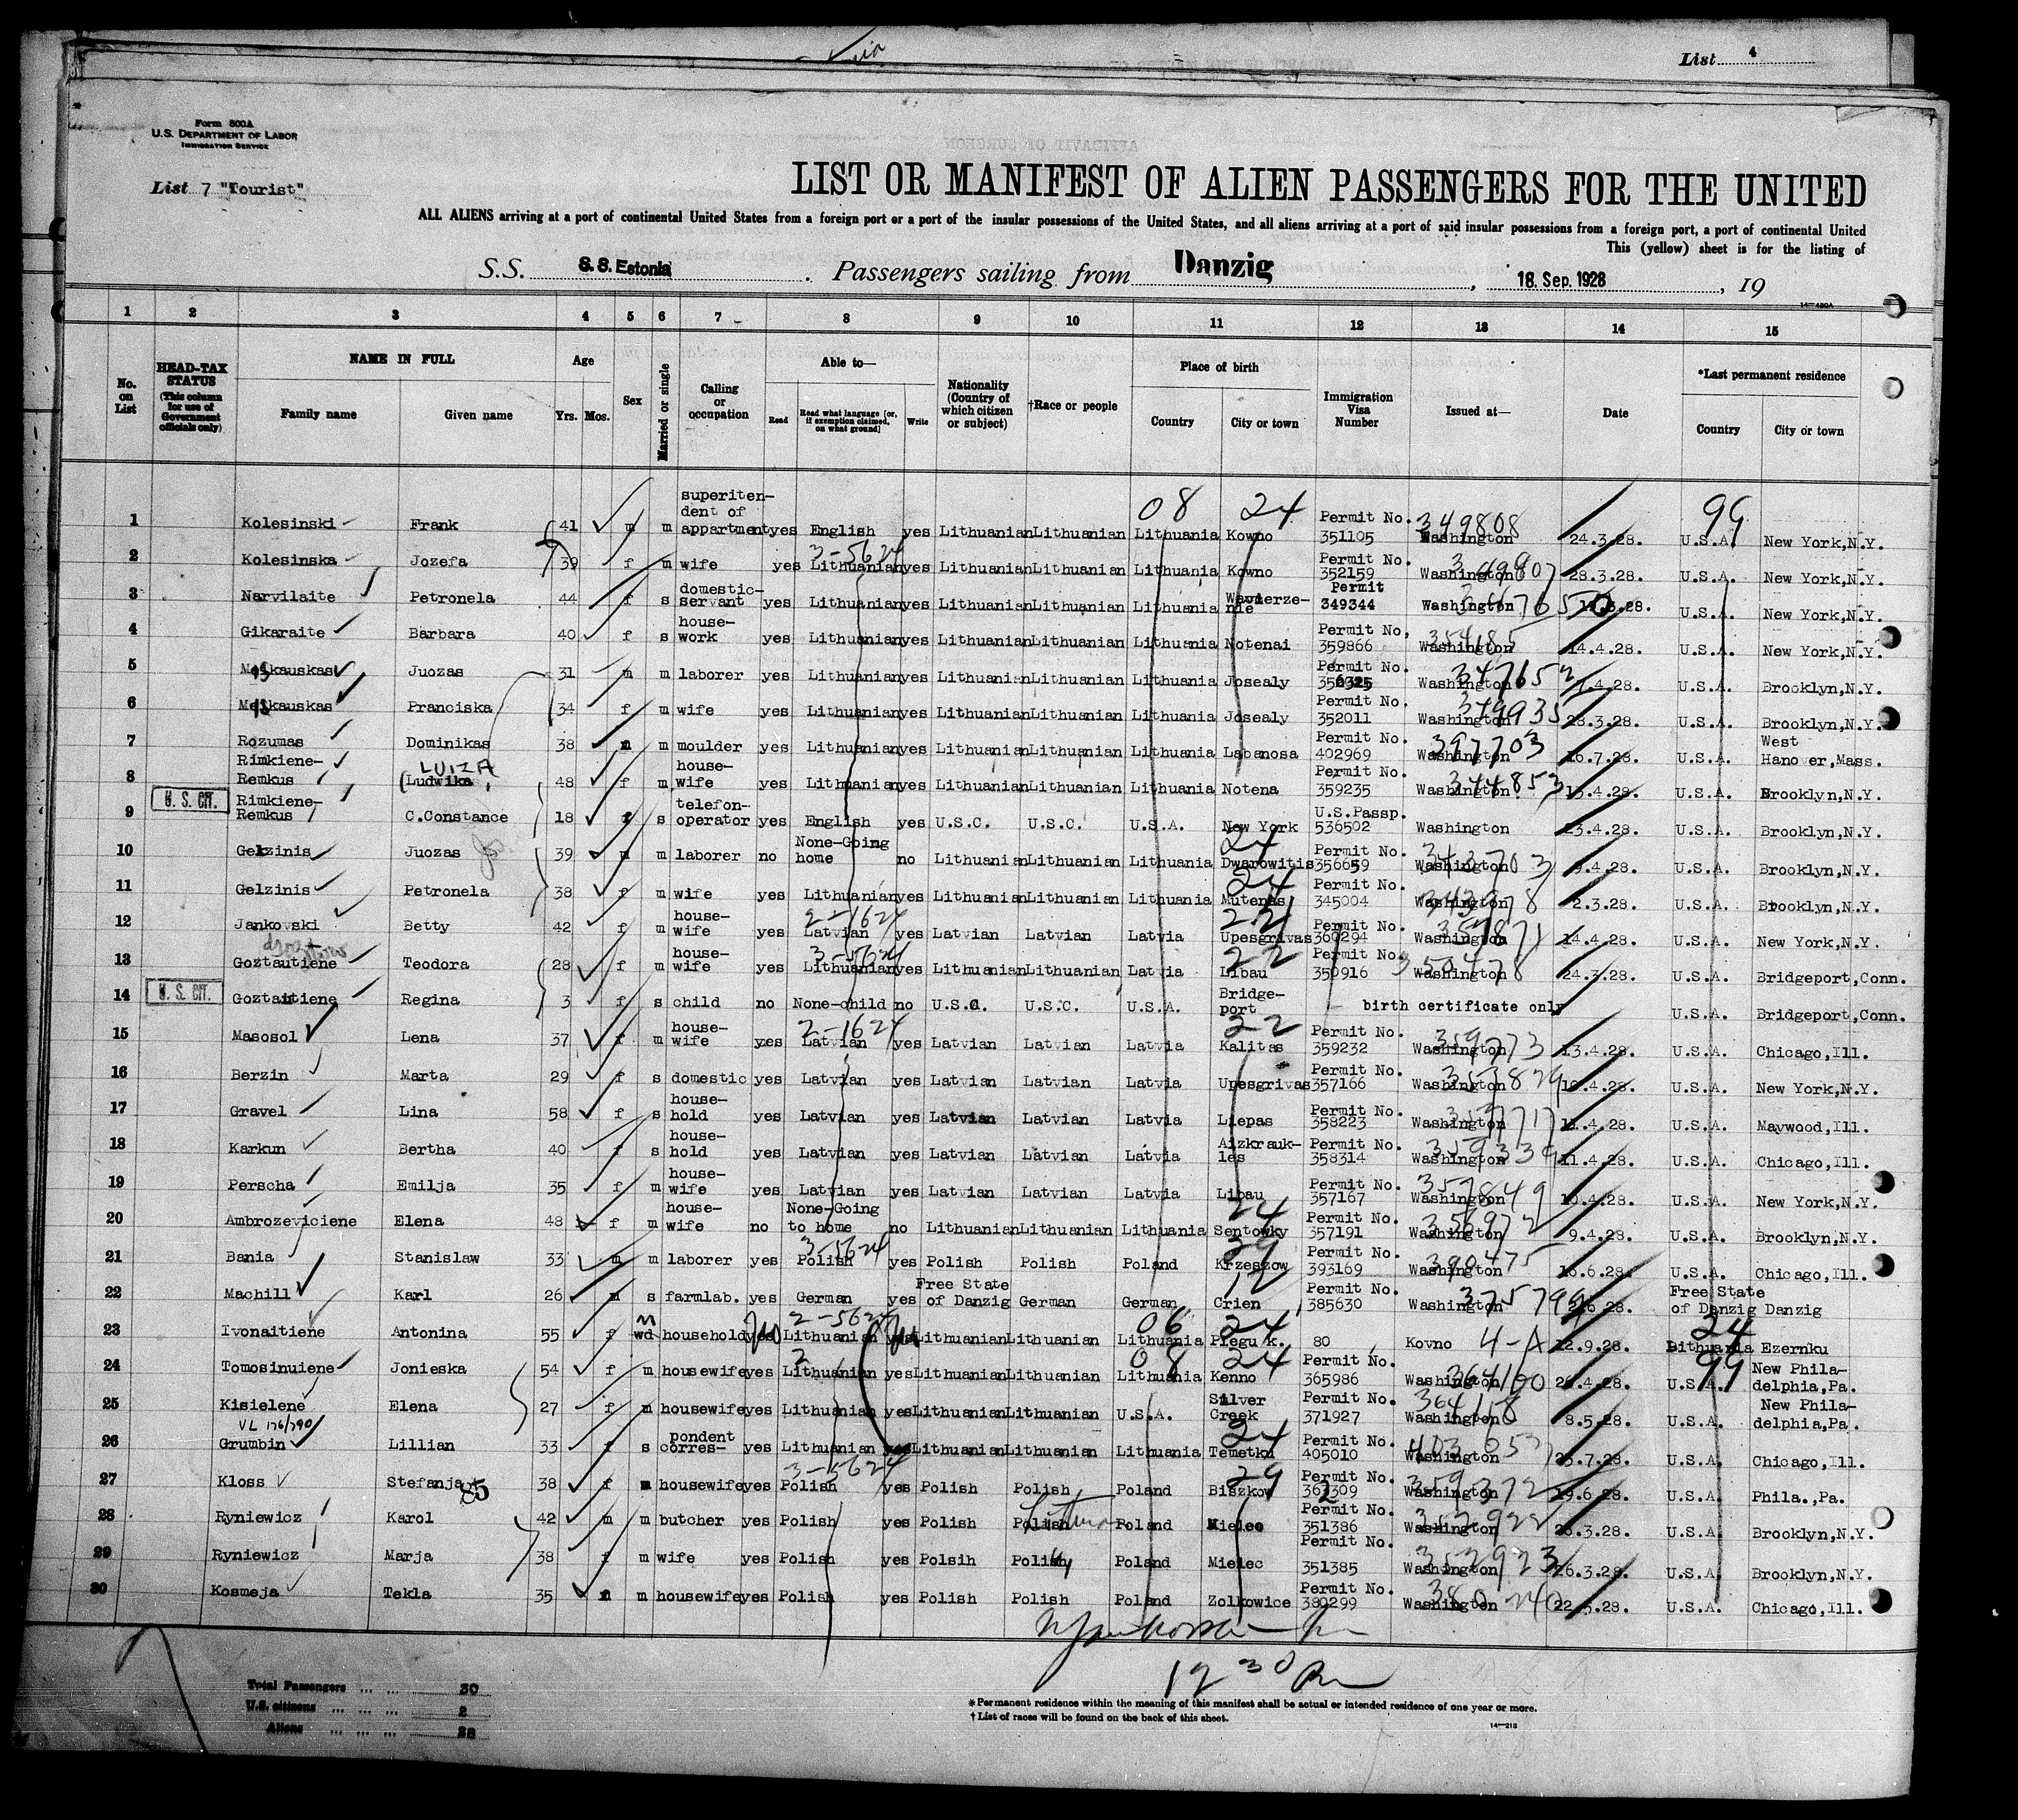 List 4
Form 500A
U.S. DEPARTMENT OF LABOR
IMMIGRATION SERVICE
List 7 "Tourist"
LIST OR MANIFEST OF ALIEN PASSENGERS FOR THE UNITED
ALL ALIENS arriving at a port of continental United States from a foreign port or a port of the insular possessions of the United States, and all aliens arriving at a port of said insular possessions from a foreign port, a port of continental United
This (yellow) sheet is for the listing of
S.S. S.S. Estonia. Passengers sailing from Danzig, 18. Sep. 1928, 19
14—480A
1 2 3 4 5 6 7 8 9 10 11 12 13 14 15
No. on List
HEAD-TAX STATUS (This column for use of Government officials only)
NAME IN FULL
Family name Given name
Age
Yrs. Mos.
Sex
Married or single
Calling or occupation
Able to—
Read Read what language (or, if exemption claimed, on what ground) Write
Nationality (Country of which citizen or subject)
†Race or people
Place of birth
Country City or town
Immigration Visa Number
Issued at—
Date
*Last permanent residence
Country City or town
08 24 99
1 Kolesinski Frank 41 m m superitendent of appartment yes English yes Lithuanian Lithuanian Lithuania Kowno Permit No. 351105 349808 Washington 24.3.28. U.S.A. New York,N.Y.
3-5624
2 Kolesinska Jozefa 39 f m wife yes Lithuanian yes Lithuanian Lithuanian Lithuania Kowno Permit No. 352159 Washington 28.3.28. U.S.A. New York,N.Y.
3 Narvilaite Petronela 44 f s domestic-servant yes Lithuanian yes Lithuanian Lithuanian Lithuania Permit 349344 Washington .3.28. U.S.A. New York,N.Y.
4 Gikaraite Barbara 40 f s house-work yes Lithuanian yes Lithuanian Lithuanian Lithuania Notenai Permit No. 359866 354185 Washington 14.4.28. U.S.A. New York,N.Y.
5 Juozas 31 m m laborer yes Lithuanian yes Lithuanian Lithuanian Lithuania Josealy Permit No. 347652 Washington .4.28. U.S.A. Brooklyn,N.Y.
6 Pranciska 34 f m wife yes Lithuanian yes Lithuanian Lithuanian Lithuania Josealy Permit No. 352011 349935 Washington 28.3.28. U.S.A. Brooklyn,N.Y.
7 Rozumas Dominikas 38 m m moulder yes Lithuanian yes Lithuanian Lithuanian Lithuania Labanosa Permit No. 402969 397703 Washington 16.7.28. U.S.A. West Hanover,Mass.
8 Rimkiene-Remkus LUIZA (Ludwika, 48 f m house-wife yes Lithuanian yes Lithuanian Lithuanian Lithuania Notena Permit No. 359235 344853 Washington 13.4.28. U.S.A. Brooklyn,N.Y.
U. S. CIT.
9 Rimkiene-Remkus C.Constance 18 f s telefon-operator yes English yes U.S.C. U.S.C. U.S.A. New York U.S.Passp. 536502 Washington 23.4.28. U.S.A. Brooklyn,N.Y.
24
10 Gelzinis Juozas 39 m m laborer no None-Going home no Lithuanian Lithuanian Lithuania Dwarowitis Permit No. 356659 Washington 9.4.28. U.S.A. Brooklyn,N.Y.
24
11 Gelzinis Petronela 38 f m wife yes Lithuanian yes Lithuanian Lithuanian Lithuania Mutenas Permit No. 345004 Washington 2.3.28. U.S.A. Brooklyn,N.Y.
2-1624 22
12 Jankovski Betty 42 f m house-wife yes Latvian yes Latvian Latvian Latvia Upesgrivas Permit No. 360294 Washington 14.4.28. U.S.A. New York,N.Y.
3-5624 22
13 Goztautiene Teodora 28 f m house-wife yes Lithuanian yes Lithuanian Lithuanian Latvia Libau Permit No. 350916 350478 Washington 24.3.28. U.S.A. Bridgeport,Conn.
U. S. CIT.
14 Goztautiene Regina 3 f s child no None-child no U.S.C. U.S.C. U.S.A. Bridge-port — birth certificate only U.S.A. Bridgeport,Conn.
2-1624 22
15 Masosol Lena 37 f m house-wife yes Latvian yes Latvian Latvian Latvia Kalitas Permit No. 359232 Washington 13.4.28. U.S.A. Chicago,Ill.
16 Berzin Marta 29 f s domestic yes Latvian yes Latvian Latvian Latvia Upesgrivas Permit No. 357166 Washington 10.4.28. U.S.A. New York,N.Y.
17 Gravel Lina 58 f s house-hold yes Latvian yes Latvian Latvian Latvia Liepas Permit No. 358223 Washington 11.4.28. U.S.A. Maywood,Ill.
18 Karkun Bertha 40 f s house-hold yes Latvian yes Latvian Latvian Latvia Aizkrauk-les Permit No. 358314 359339 Washington 11.4.28. U.S.A. Chicago,Ill.
19 Perscha Emilja 35 f m house-wife yes Latvian yes Latvian Latvian Latvia Libau Permit No. 357167 357849 Washington 10.4.28. U.S.A. New York,N.Y.
24
20 Ambrozeviciene Elena 48 f m house-wife no None-Going to home no Lithuanian Lithuanian Lithuania Sentowky Permit No. 357191 356972 Washington 9.4.28. U.S.A. Brooklyn,N.Y.
3-5624 29
21 Bania Stanislaw 33 m m laborer yes Polish yes Polish Polish Poland Krzeszow Permit No. 393169 390475 Washington 16.6.28. U.S.A. Chicago,Ill.
12
22 Machill Karl 26 m s farmlab. yes German yes Free State of Danzig German German Crien Permit No. 385630 375799 Washington .6.28. Free State of Danzig Danzig
2-5624 06 24 24
23 Ivonaitiene Antonina 55 f m wd household yes Lithuanian yes Lithuanian Lithuanian Lithuania Plegu k. 80 Kovno 4-A 12.9.28. Lithuania Ezernku
08 24 99
24 Tomosinuiene Jonieska 54 f m housewife yes Lithuanian yes Lithuanian Lithuanian Lithuania Kenno Permit No. 365986 364100 Washington 26.4.28. U.S.A. New Phila-delphia,Pa.
25 Kisielene Elena 27 f m housewife yes Lithuanian yes Lithuanian Lithuanian U.S.A. Silver Creek Permit No. 371927 364158 Washington 8.5.28. U.S.A. New Phila-delphia,Pa.
VL 176/790 24
26 Grumbin Lillian 33 f s pondent corres- yes Lithuanian yes Lithuanian Lithuanian Lithuania Temetku Permit No. 405010 Washington 23.7.28. U.S.A. Chicago,Ill.
3-5624 29
27 Kloss Stefanja 85 38 f m housewife yes Polish yes Polish Polish Poland Biszkow Permit No. 359372 Washington 19.6.28. U.S.A. Phila.,Pa.
28 Ryniewicz Karol 42 m m butcher yes Polish yes Polish Polish Poland Mielec Permit No. 351386 352922 Washington 26.3.28. U.S.A. Brooklyn,N.Y.
29 Ryniewicz Marja 38 f m wife yes Polish yes Polsih Polish Poland Mielec Permit No. 351385 352923 Washington 26.3.28. U.S.A. Brooklyn,N.Y.
30 Kosmeja Tekla 35 m housewife yes Polish yes Polish Polish Poland Zolkowice Permit No. 380299 380240 Washington 22.5.28. U.S.A. Chicago,Ill.
12 30
Total Passengers ... ... 30
U.S. citizens ... ... ... 2
Aliens ... ... ... 28
*Permanent residence within the meaning of this manifest shall be actual or intended residence of one year or more.
†List of races will be found on the back of this sheet.
14—213